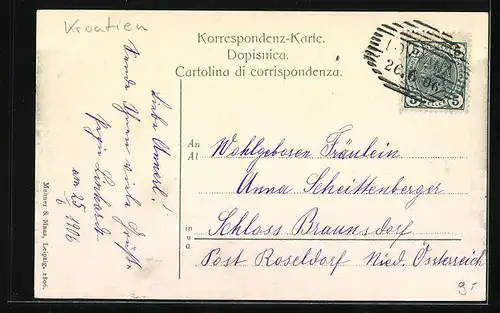 Kroatien
Korrespondenz-Karte.
Dopisnica.
Cartolina di corrispondenza.
26.6.06
5 5
Liebe Annerl!
Sende Ihnen viele Grüße
am 25/6 1906
Mehner & Maas, Leipzig.
An
Al
Wohlgeboren Fräulein
Anna Scheittenberger
in
u a
Schloss Braunsdorf
Post Roseldorf Nied. Österreich
9.-